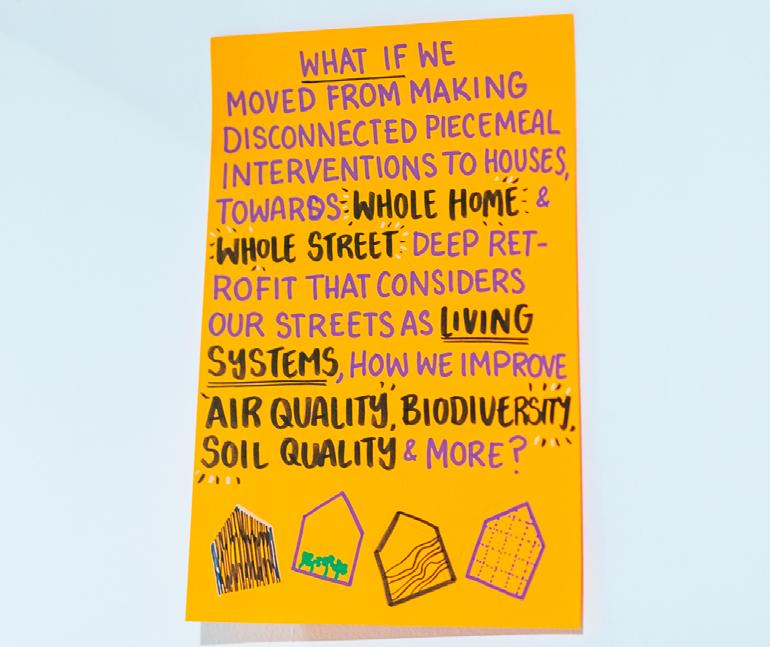 WHAT IF WE
MOVED FROM MAKING
DISCONNECTED PIECEMEAL
INTERVENTIONS TO HOUSES,
TOWARDS WHOLE HOME &
WHOLE STREET DEEP RET-
ROFIT THAT CONSIDERS
OUR STREETS AS LIVING
SYSTEMS, HOW WE IMPROVE
AIR QUALITY, BIODIVERSITY,
SOIL QUALITY & MORE?